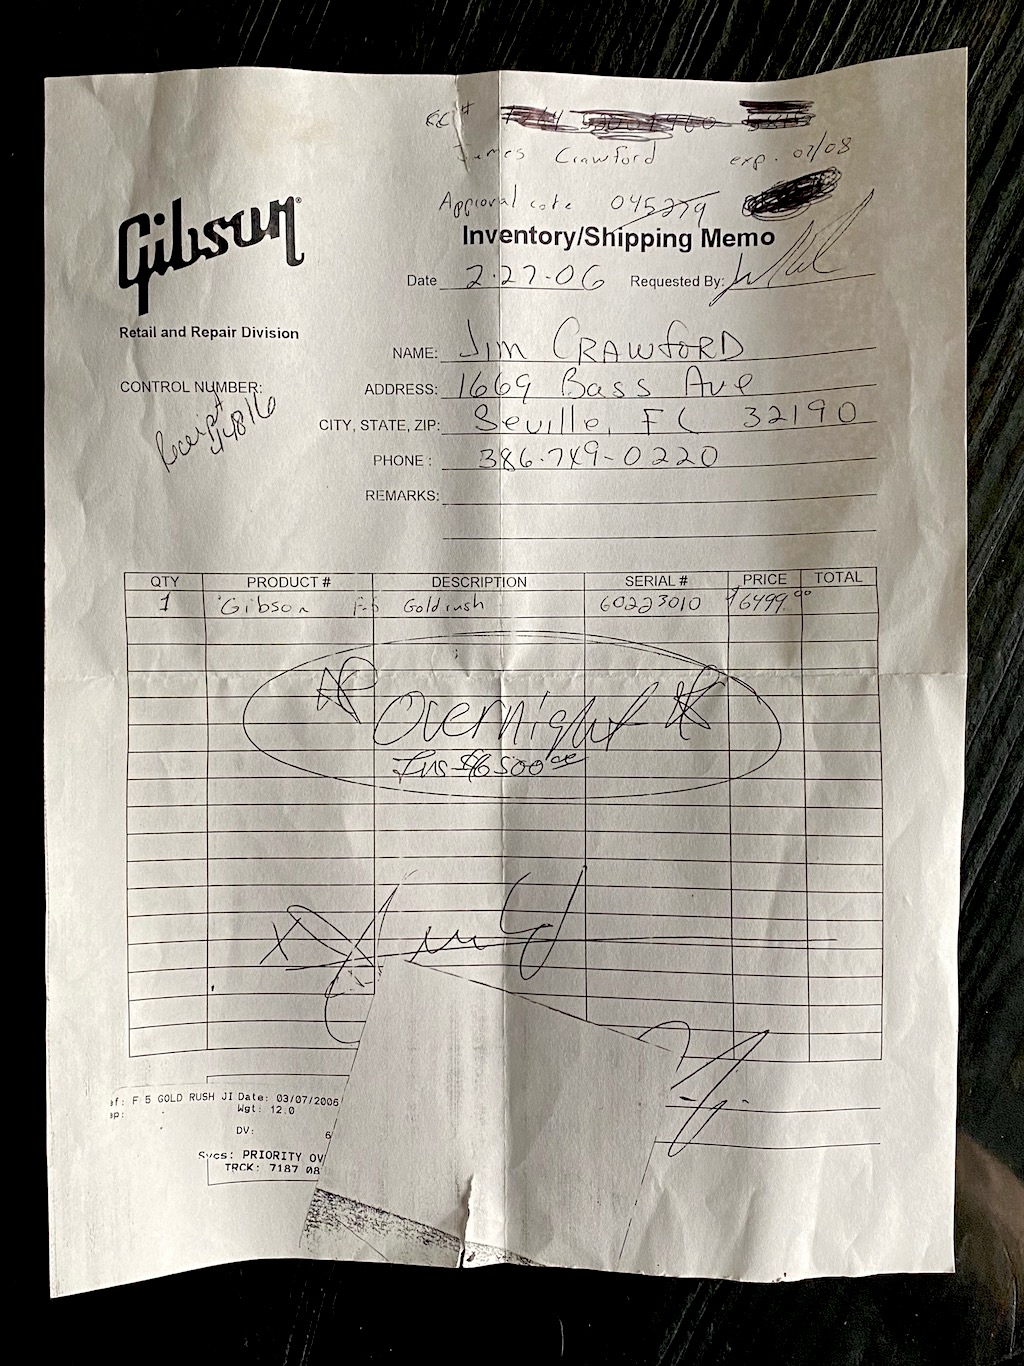 CC #
James Crawford exp. 07/08
Approval code 045279
Gibson
Inventory/Shipping Memo
Date 2-27-06 Requested By:
Retail and Repair Division
NAME: Jim CRAWFORD
CONTROL NUMBER:
Receipt
44816
ADDRESS: 1669 Bass Ave
CITY, STATE, ZIP: Seville, FL 32190
PHONE: 386-749-0220
REMARKS:
QTY PRODUCT # DESCRIPTION SERIAL # PRICE TOTAL
1 Gibson F-5 Goldrush 60223010 $6499.00
Overnight
Ins $6500
X
F 5 GOLD RUSH JI Date: 03/07/2006
Wgt: 12.0
DV: 6
Svcs: PRIORITY OV
TRCK: 7187 08